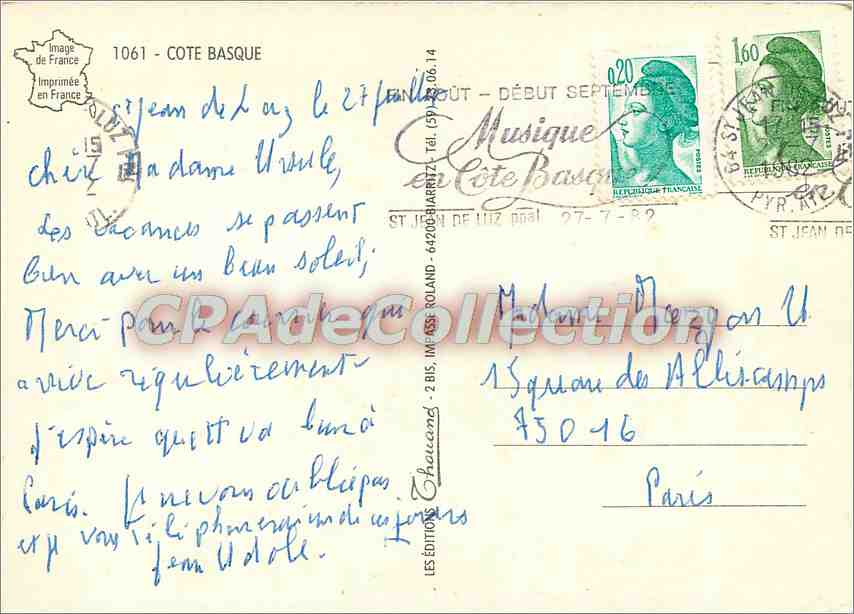 Image
de France
Imprimée
en France
1061 - COTE BASQUE
St Jean de Luz le 27 juillet
chère Madame Ursule,
Les vacances se passent
bien avec un beau soleil,
Merci pour le courrier que
arrive régulièrement
J'espère que tt va bien à
Paris. Je ne vous oublie pas
et je vous téléphonerai un de ces jours
Jean
LES ÉDITIONS Thouand - 2 BIS, IMPASSE ROLAND - 64200 BIARRITZ - Tél. (59) 23.06.14
FIN AOÛT - DÉBUT SEPTEMBRE
Musique
en Côte Basque
ST JEAN DE LUZ ppal 27-7-82
0,20
POSTES
REPUBLIQUE FRANÇAISE
1,60
POSTES
REPUBLIQUE FRANÇAISE
64 ST JEAN
PYR. ATL
ST JEAN DE
CPAdeCollection
Madame U
1 Square des
75016
Paris